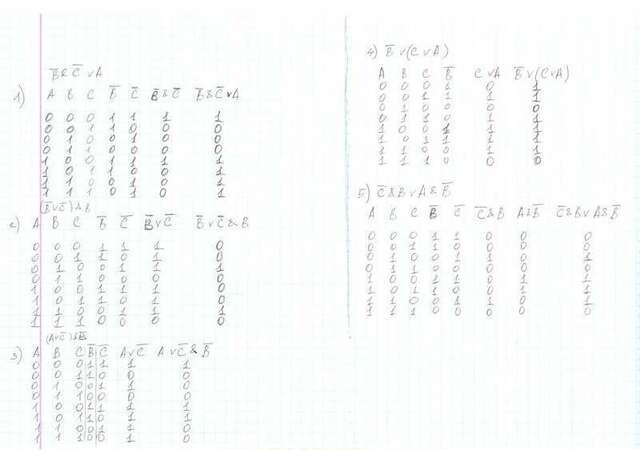 B̅&C̅vA
1) A B C B̅ C̅ B̅&C̅ B̅&C̅vA
0 0 0 1 1 1 1
0 0 1 1 0 0 0
0 1 0 0 1 0 0
0 1 1 0 0 0 0
1 0 0 1 1 1 1
1 0 1 1 0 0 1
1 1 0 0 1 0 1
1 1 1 0 0 0 1
(B̅vC̅)&B
2) A B C B̅ C̅ B̅vC̅ B̅vC̅&B
0 0 0 1 1 1 0
0 0 1 1 0 1 0
0 1 0 0 1 1 1
0 1 1 0 0 0 0
1 0 0 1 1 1 0
1 0 1 1 0 1 0
1 1 0 0 1 1 1
1 1 1 0 0 0 0
(AvC̅)&B̅
3) A B C B̅ C̅ AvC̅ AvC̅&B̅
0 0 0 1 1 1 1
0 0 1 1 0 0 0
0 1 0 0 1 1 0
0 1 1 0 0 0 0
1 0 0 1 1 1 1
1 0 1 1 0 1 1
1 1 0 0 1 1 0
1 1 1 0 0 1 0
4) B̅v(CvA)
A B C B̅ CvA B̅v(CvA)
0 0 0 1 0 1
0 0 1 1 1 1
0 1 0 0 0 0
0 1 1 0 1 1
1 0 0 1 1 1
1 0 1 1 1 1
1 1 0 0 1 1
1 1 1 0 0 0
5) C̅&BvA&B̅
A B C B̅ C̅ C̅&B A&B̅ C̅&BvA&B̅
0 0 0 1 1 0 0 0
0 0 1 1 0 0 0 0
0 1 0 0 1 1 0 1
0 1 1 0 0 0 0 0
1 0 0 1 1 0 1 1
1 0 1 1 0 0 1 1
1 1 0 0 1 1 0 1
1 1 1 0 0 0 0 0